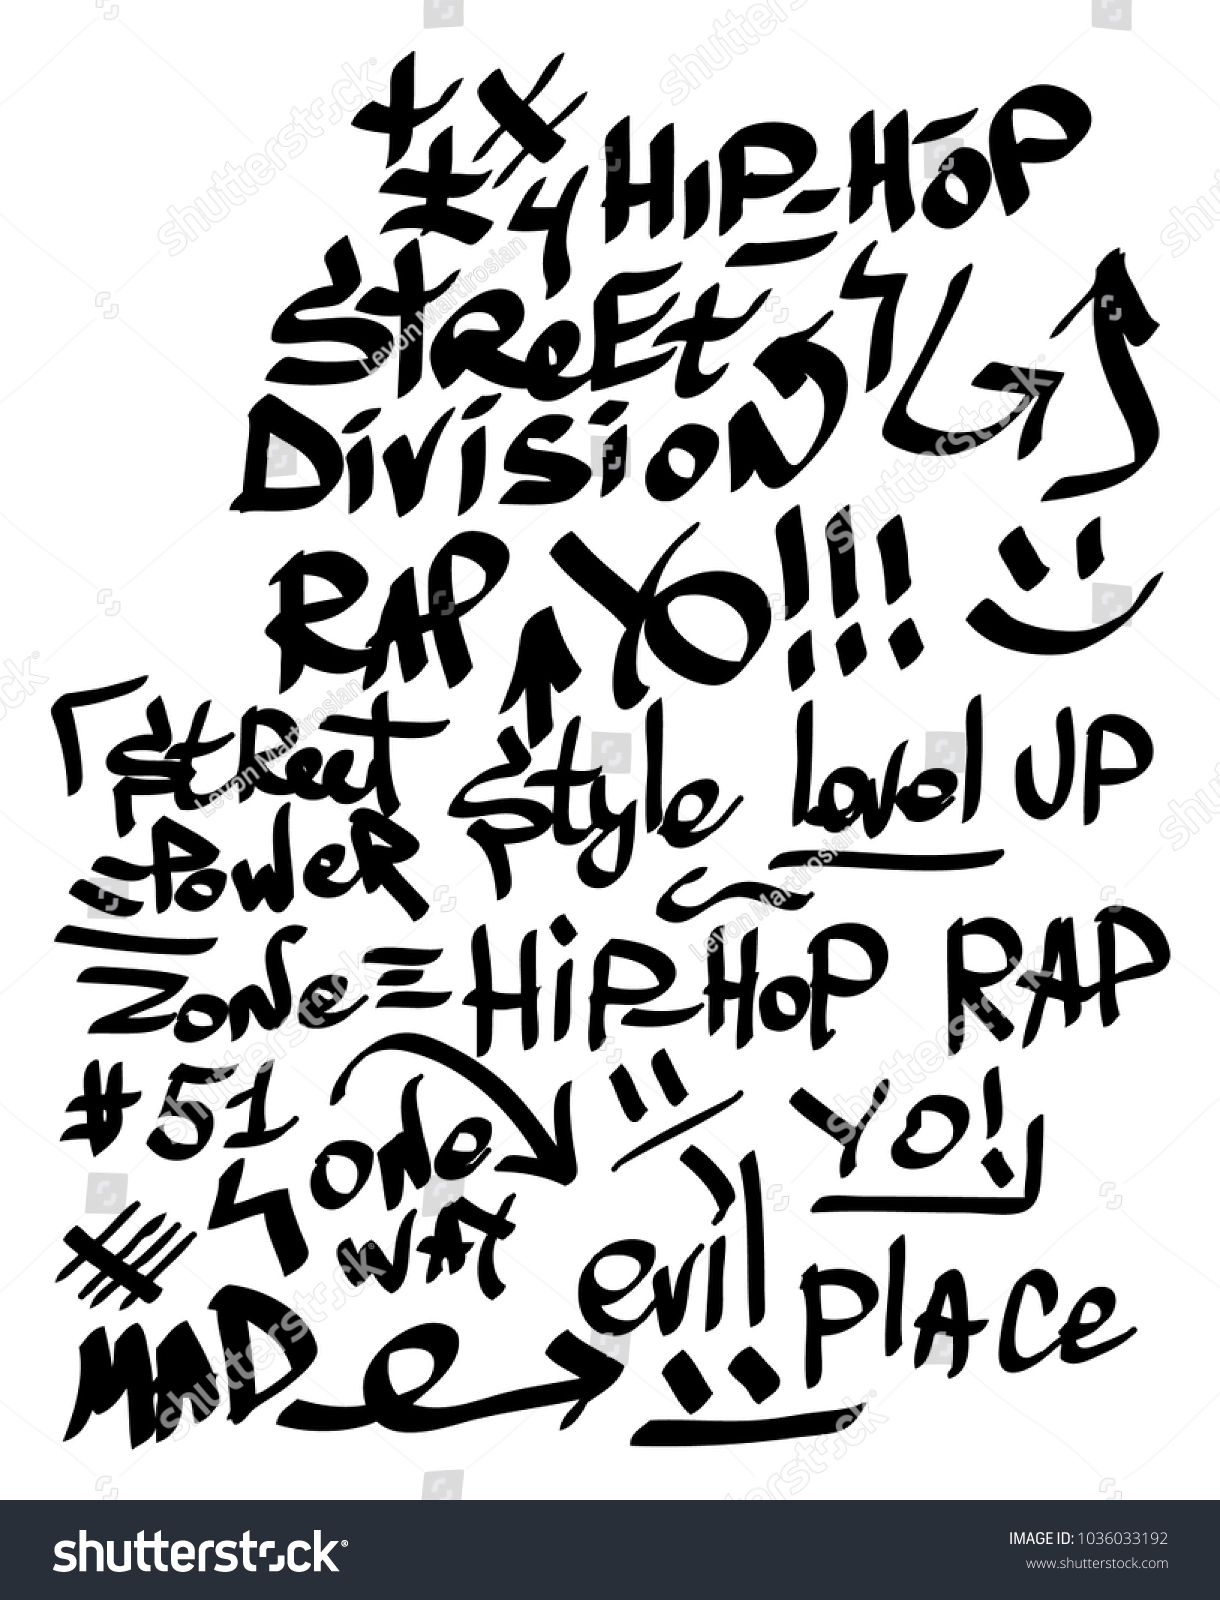 HiP-HOP
StReEt
DiVISiON
RAP YO!!!
StReet Style level UP
POWeR
ZONe HiP-HoP RAP
#51 ONe YO!
WAY evil PlACe
MAD
shutterstock
IMAGE ID: 1036033192
www.shutterstock.com
Levon Martirosian